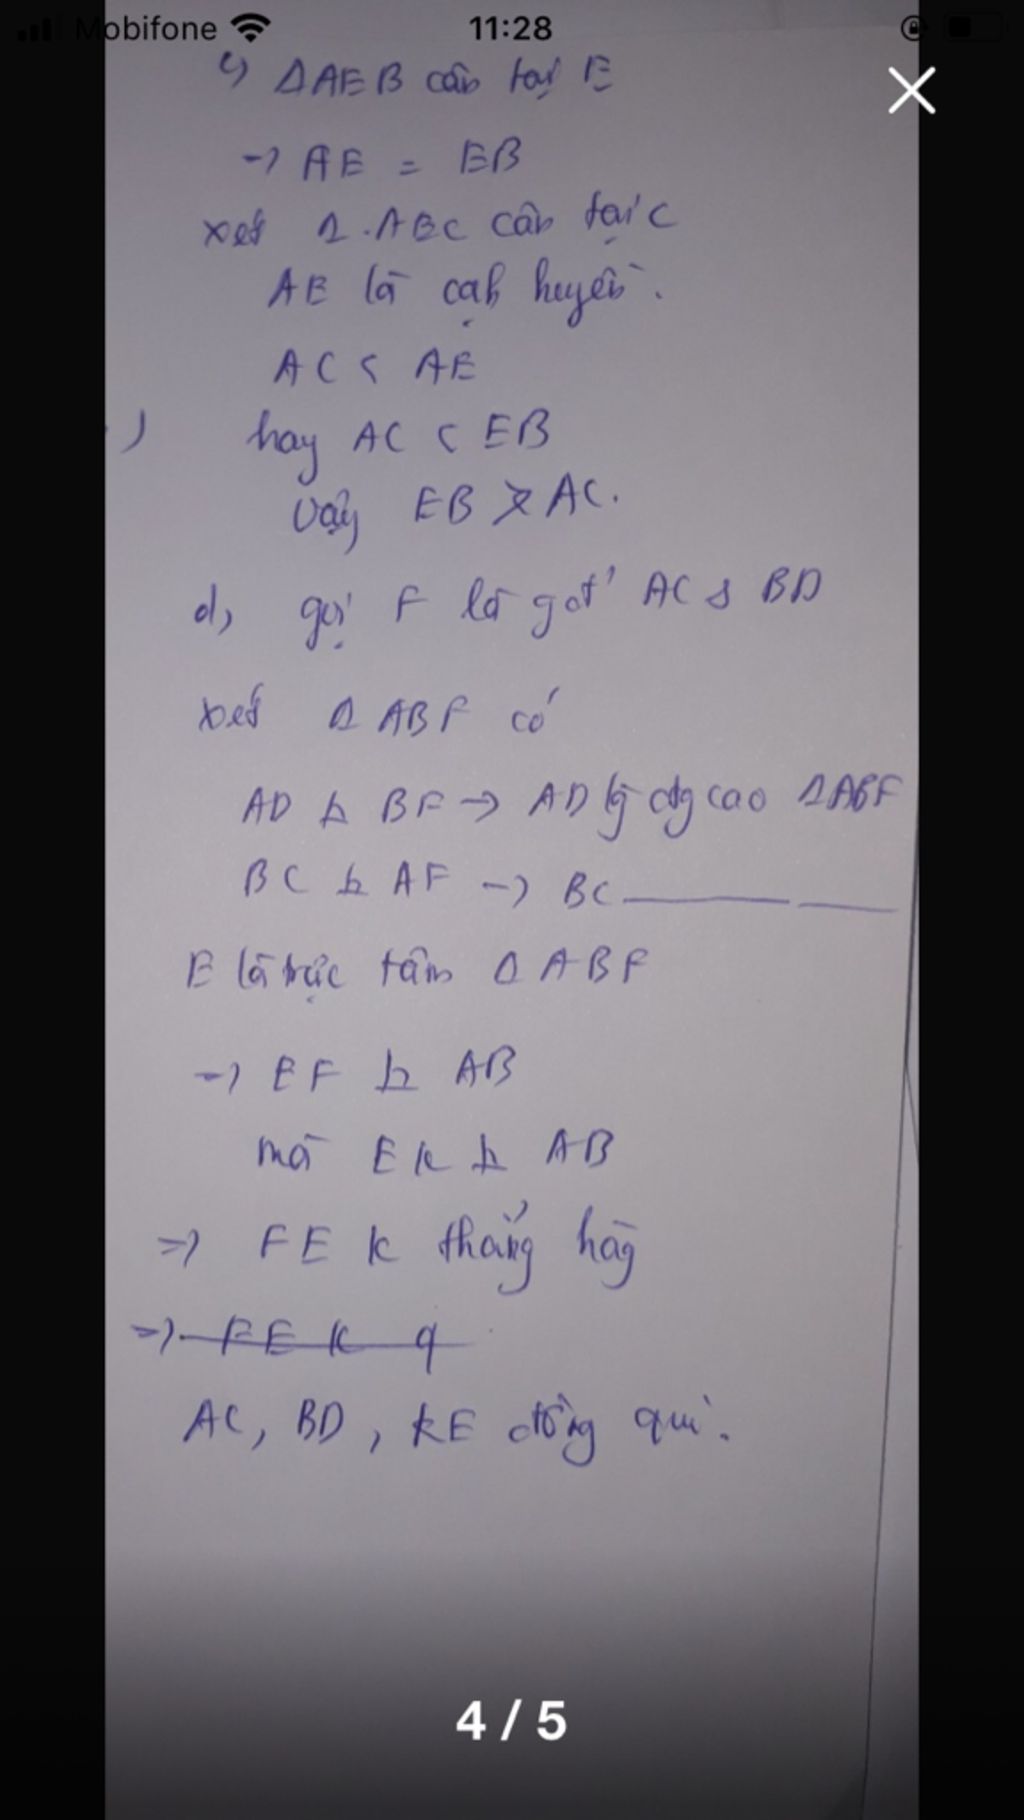 Mobifone 11:28
c) ΔAEB cân tại E
→ AE = EB
xét Δ ABC cân tại C
AE là cạh huyền.
AC < AE
) hay AC < EB
vậy EB > AC.
d, gọi F là gđ' AC & BD
xét Δ ABF có
AD ⊥ BF → AD là đg cao ΔABF
BC ⊥ AF → BC ———— ——
E là trực tâm Δ ABF
→ EF ⊥ AB
mà EK ⊥ AB
=> FE K thẳng hàg
=> FE K q
AC, BD, KE đồng qui.
4 / 5